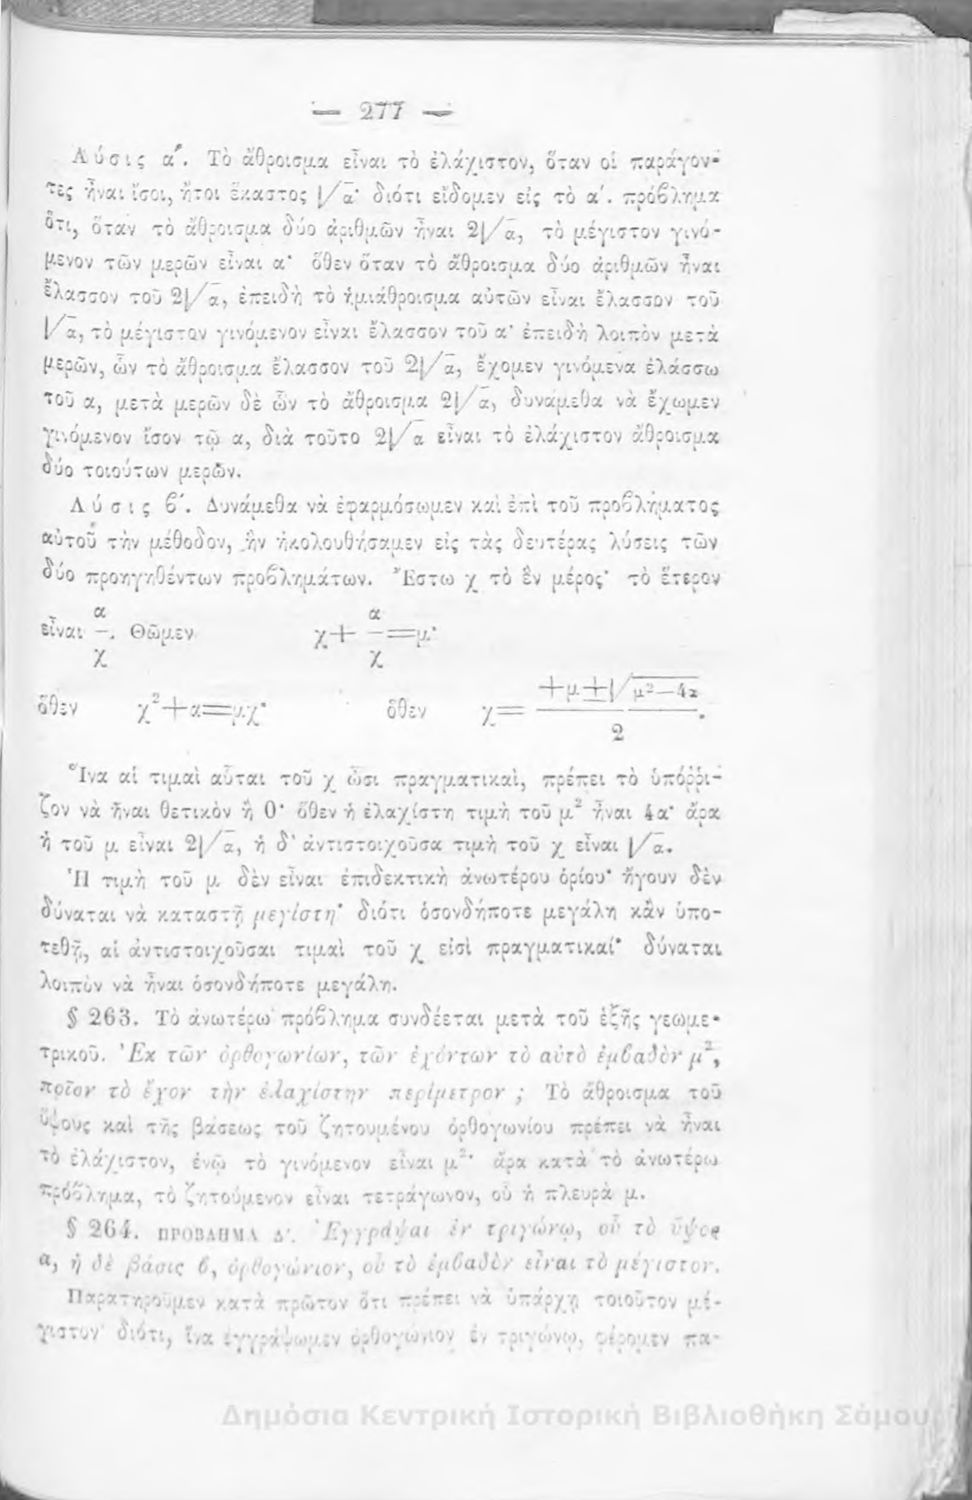 — 277 —
Λύσις α΄. Τὸ ἄθροισμα εἶναι τὸ ἐλάχιστον, ὅταν οἱ παράγον-
τες ἦναι ἴσοι, ἤτοι ἕκαστος √α· διότι εἴδομεν εἰς τὸ α΄. πρόβλημα
ὅτι, ὅταν τὸ ἄθροισμα δύο ἀριθμῶν ἦναι 2√α, τὸ μέγιστον γινό-
μενον τῶν μερῶν εἶναι α· ὅθεν ὅταν τὸ ἄθροισμα δύο ἀριθμῶν ἦναι
ἔλασσον τοῦ 2√α, ἐπειδὴ τὸ ἡμιάθροισμα αὐτῶν εἶναι ἔλασσον τοῦ
√α, τὸ μέγιστον γινόμενον εἶναι ἔλασσον τοῦ α· ἐπειδὴ λοιπὸν μετὰ
μερῶν, ὧν τὸ ἄθροισμα ἔλασσον τοῦ 2√α, ἔχομεν γινόμενα ἐλάσσω
τοῦ α, μετὰ μερῶν δὲ ὧν τὸ ἄθροισμα 2√α, δυνάμεθα νὰ ἔχωμεν
γινόμενον ἴσον τῷ α, διὰ τοῦτο 2√α εἶναι τὸ ἐλάχιστον ἄθροισμα
δύο τοιούτων μερῶν.
Λύσις β΄. Δυνάμεθα νὰ ἐφαρμόσωμεν καὶ ἐπὶ τοῦ προβλήματος
αὐτοῦ τὴν μέθοδον, ἣν ἠκολουθήσαμεν εἰς τὰς δευτέρας λύσεις τῶν
δύο προηγηθέντων προβλημάτων. Ἔστω χ τὸ ἓν μέρος· τὸ ἕτερον
εἶναι α/χ. Θῶμεν χ+α/χ=μ·
ὅθεν χ²+α=μχ· ὅθεν χ=(+μ±√(μ²—4α))/2.
Ἵνα αἱ τιμαὶ αὗται τοῦ χ ὦσι πραγματικαὶ, πρέπει τὸ ὑπόῤῥι-
ζον νὰ ἦναι θετικὸν ἢ 0· ὅθεν ἡ ἐλαχίστη τιμὴ τοῦ μ² ἦναι 4α· ἄρα
ἡ τοῦ μ εἶναι 2√α, ἡ δ' ἀντιστοιχοῦσα τιμὴ τοῦ χ εἶναι √α.
Ἡ τιμὴ τοῦ μ δὲν εἶναι ἐπιδεκτικὴ ἀνωτέρου ὁρίου· ἤγουν δὲν
δύναται νὰ καταστῇ μεγίστη· διότι ὁσονδήποτε μεγάλη κἂν ὑπο-
τεθῇ, αἱ ἀντιστοιχοῦσαι τιμαὶ τοῦ χ εἰσὶ πραγματικαί· δύναται
λοιπὸν νὰ ἦναι ὁσονδήποτε μεγάλη.
§ 263. Τὸ ἀνωτέρω πρόβλημα συνδέεται μετὰ τοῦ ἑξῆς γεωμε-
τρικοῦ. Ἐκ τῶν ὀρθογωνίων, τῶν ἐχόντων τὸ αὐτὸ ἐμβαδὸν μ²,
ποῖον τὸ ἔχον τὴν ἐλαχίστην περίμετρον ; Τὸ ἄθροισμα τοῦ
ὕψους καὶ τῆς βάσεως τοῦ ζητουμένου ὀρθογωνίου πρέπει νὰ ἦναι
τὸ ἐλάχιστον, ἐνῷ τὸ γινόμενον εἶναι μ²· ἄρα κατὰ τὸ ἀνωτέρω
πρόβλημα, τὸ ζητούμενον εἶναι τετράγωνον, οὗ ἡ πλευρὰ μ.
§ 264. ΠΡΟΒΛΗΜΑ Δ΄. Ἐγγράψαι ἐν τριγώνῳ, οὗ τὸ ὕψος
α, ἡ δὲ βάσις β, ὀρθογώνιον, οὗ τὸ ἐμβαδὸν εἶναι τὸ μέγιστον.
Παρατηροῦμεν κατὰ πρῶτον ὅτι πρέπει νὰ ὑπάρχῃ τοιοῦτον μέ-
γιστον· διότι, ἵνα ἐγγράψωμεν ὀρθογώνιον ἐν τριγώνῳ, φέρομεν πα-
Δημόσια Κεντρική Ιστορική Βιβλιοθήκη Σάμου